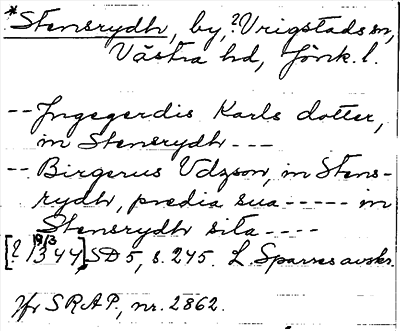 *Stensrydh, by, ?Vrigstads sn,
Västra hd, Jönk. l.
-- Jngegerdis Karls dotter,
in Stensrydh ---
-- Birgerus Udzson, in Stens-
rydh, predia sua ----- in
Stensrydh sita ----
[? 19/3 1344] SD5, s. 245. L. Sparres avskr.
Jfr SRAP, nr. 2862.